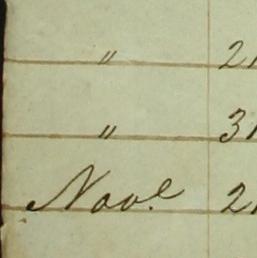 " 2
" 31
Novr. 2